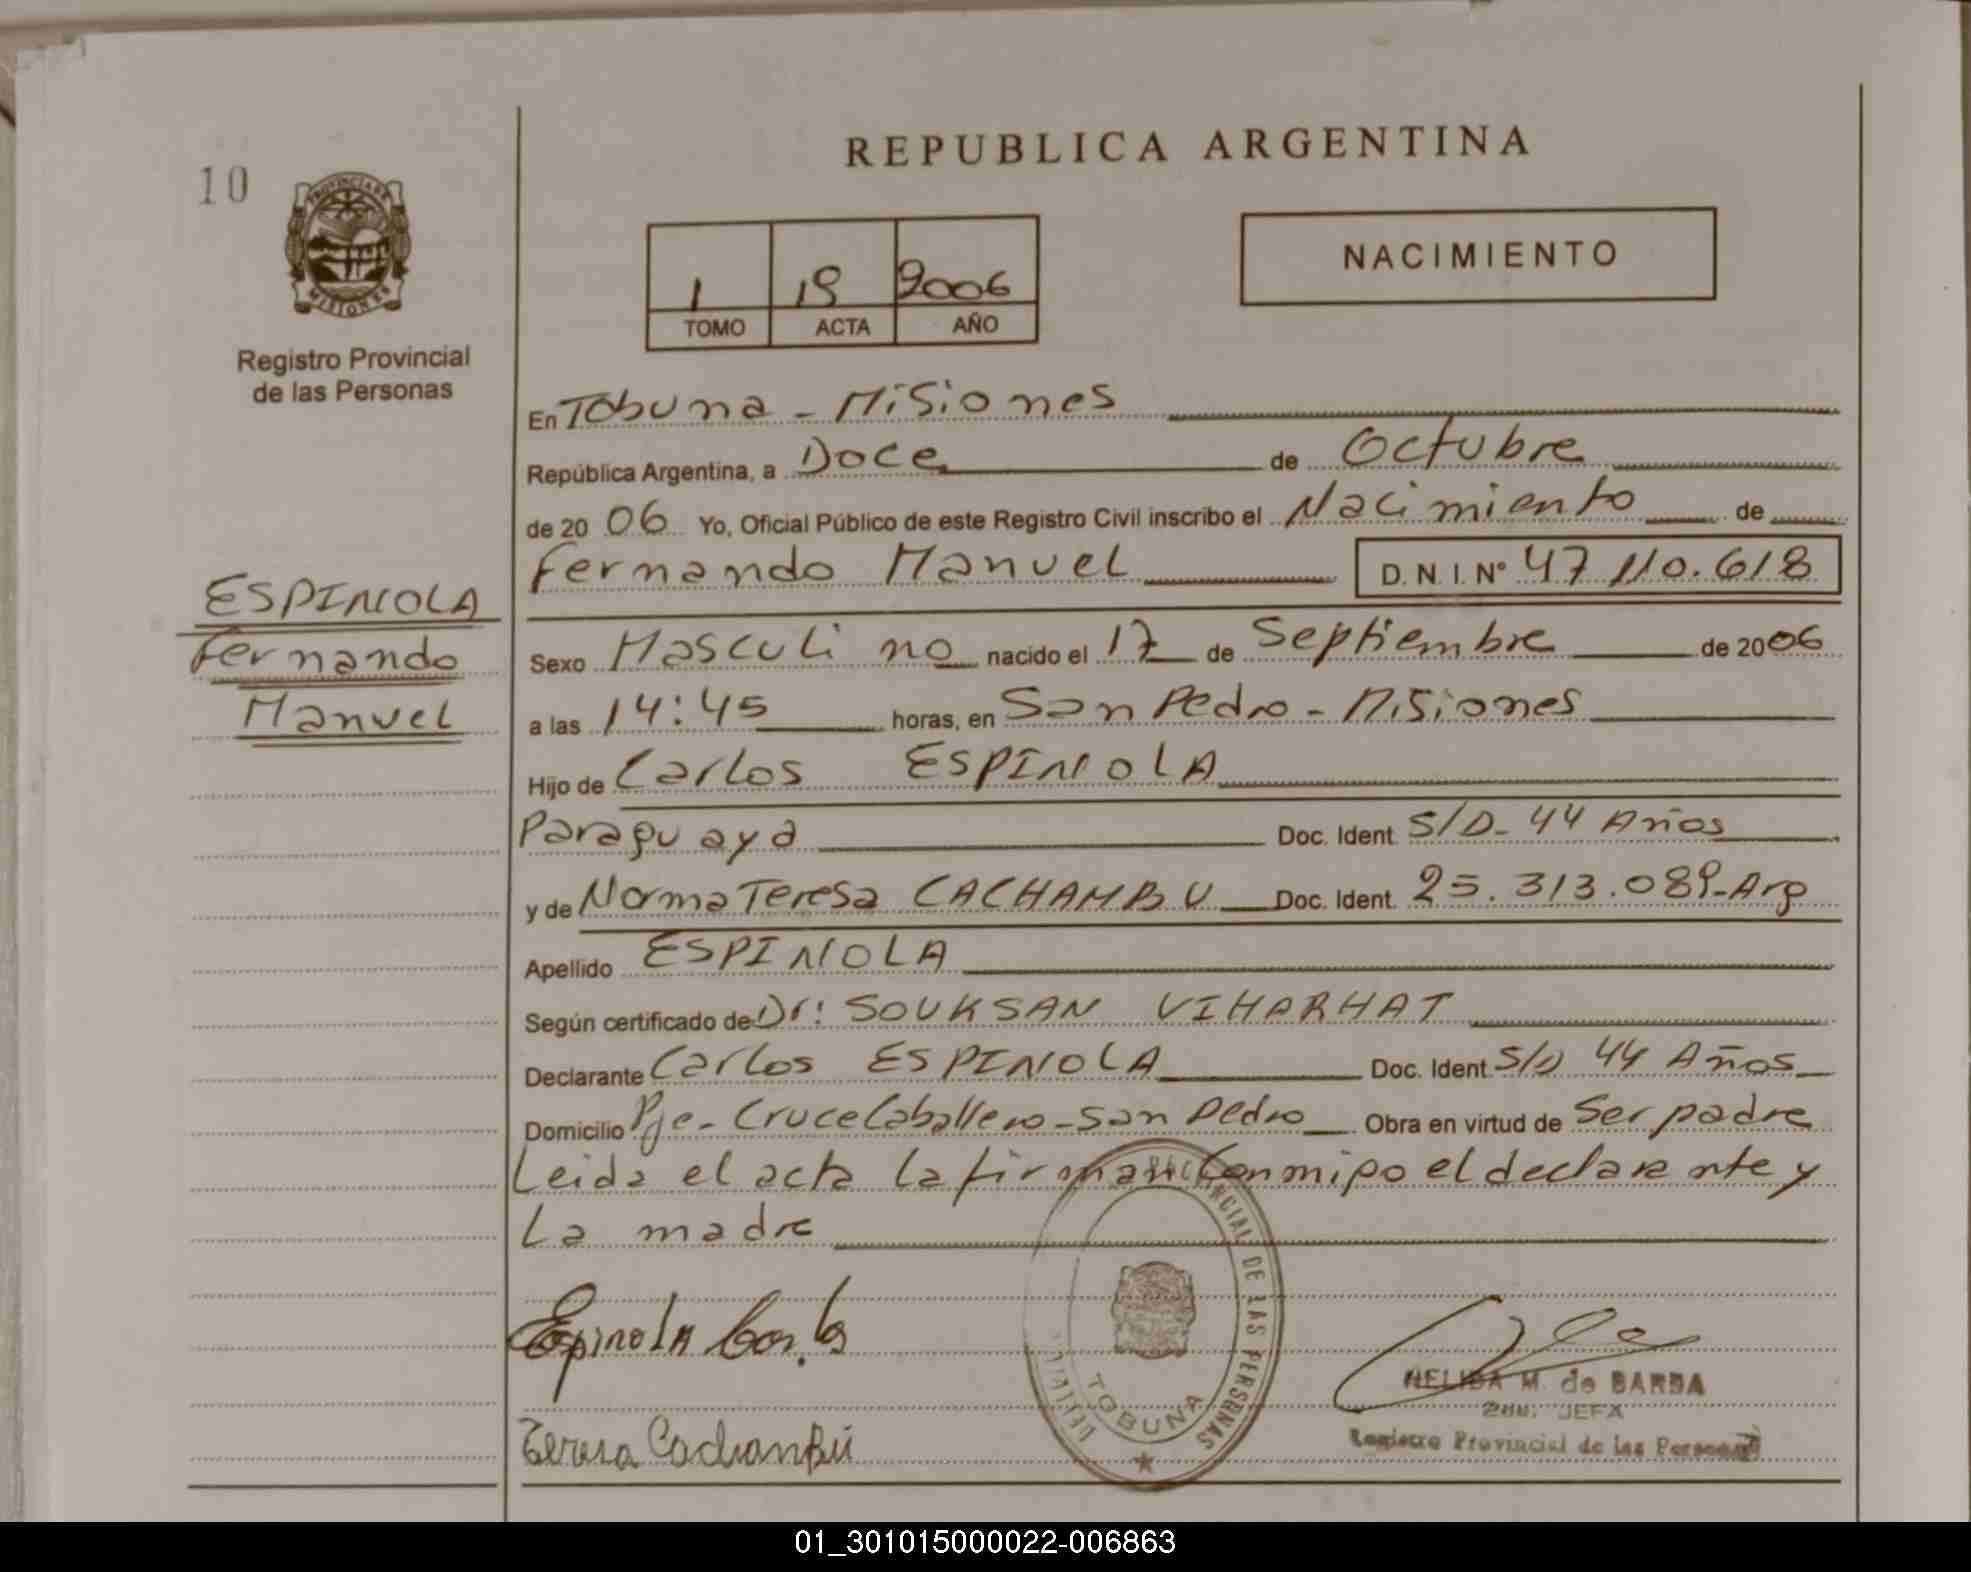 REPUBLICA ARGENTINA
10
PROVINCIA DE
MISIONES
Registro Provincial
de las Personas
NACIMIENTO
1 19 2006
TOMO ACTA AÑO
En Tobuna - Misiones
República Argentina, a Doce de Octubre
de 2006 Yo, Oficial Público de este Registro Civil inscribo el Nacimiento de
Fernando Manuel D.N.I.Nº 47 110.618
ESPINOLA
Fernando
Manuel
Sexo Masculino nacido el 17 de Septiembre de 2006
a las 14:45 horas, en San Pedro - Misiones
Hijo de Carlos ESPINOLA
Paraguaya Doc. Ident. S/D- 44 Años
y de Norma Teresa CACHAMBU Doc. Ident. 25.313.089-Arg
Apellido ESPINOLA
Según certificado de Dr: SOUKSAN VIHARHAT
Declarante Carlos ESPINOLA Doc. Ident. S/D 44 Años
Domicilio Pje- Cruce Caballero - San Pedro Obra en virtud de Ser padre
Leida el acta la firman Conmigo el declarante y
La madre
Espinola Carlos
Teresa Cachambú
DE LAS PERSONAS
TOBUNA
M. de BARBA
JEFA
Registro Provincial de las Personas
01_301015000022-006863